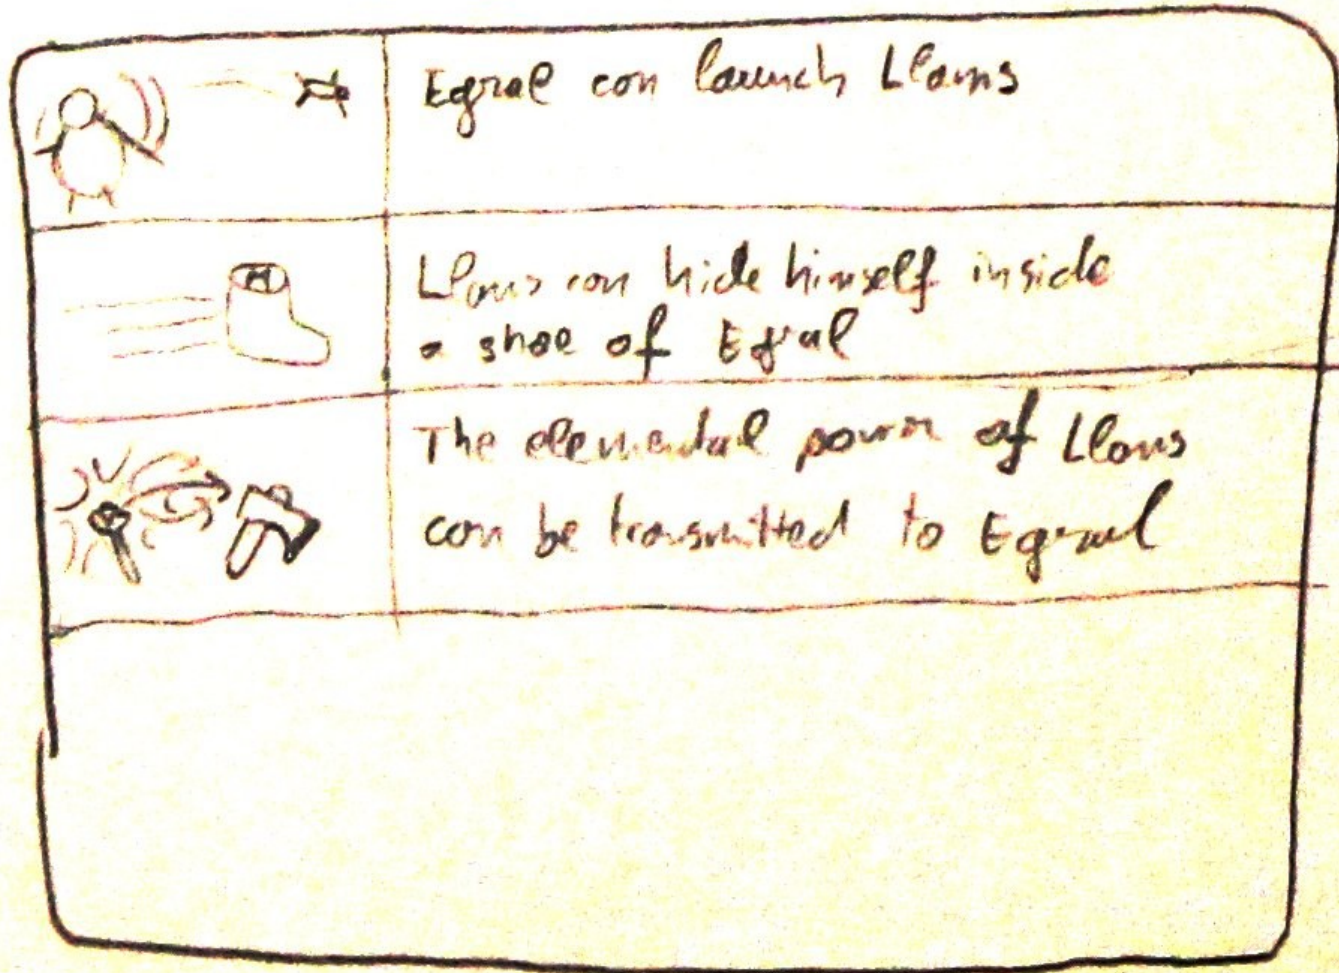 Egrael can launch Llams
Llams can hide himself inside
a shoe of Egrael
The elemental power of Llams
can be transmitted to Egrael